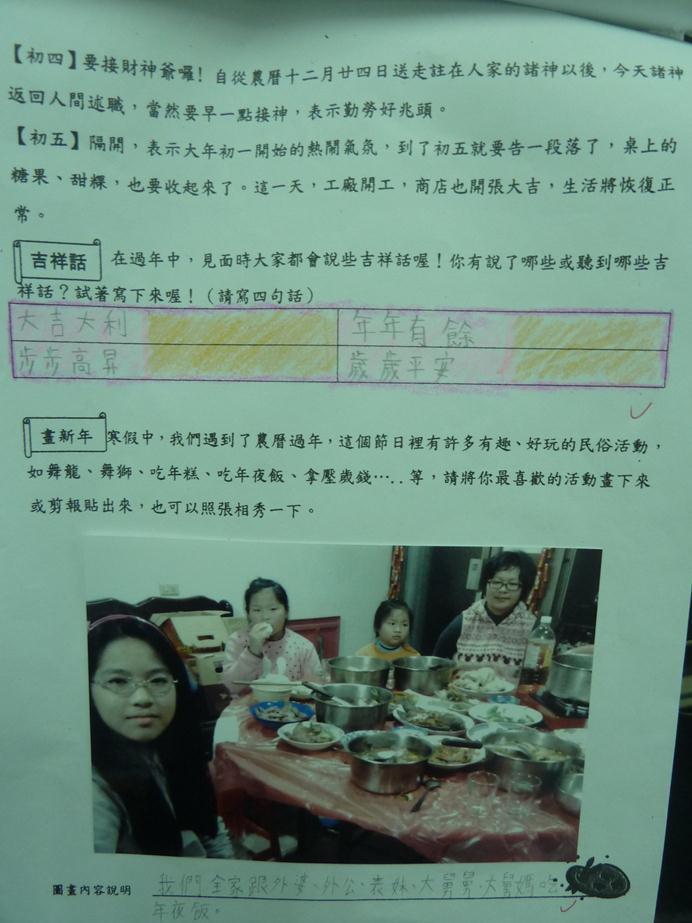 【初四】要接財神爺囉！自從農曆十二月廿四日送走註在人家的諸神以後，今天諸神
返回人間述職，當然要早一點接神，表示勤勞好兆頭。
【初五】隔開，表示大年初一開始的熱鬧氣氛，到了初五就要告一段落了，桌上的
糖果、甜粿，也要收起來了。這一天，工廠開工，商店也開張大吉，生活將恢復正
常。
吉祥話 在過年中，見面時大家都會說些吉祥話喔！你有說了哪些或聽到哪些吉
祥話？試著寫下來喔！（請寫四句話）
大吉大利 年年有餘
步步高昇 歲歲平安
畫新年 寒假中，我們遇到了農曆過年，這個節日裡有許多有趣、好玩的民俗活動，
如舞龍、舞獅、吃年糕、吃年夜飯、拿壓歲錢…..等，請將你最喜歡的活動畫下來
或剪報貼出來，也可以照張相秀一下。
圖畫內容說明 我們全家跟外婆、外公、表妹、大舅舅、大舅媽吃
年夜飯。